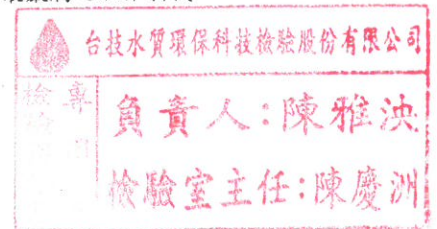 台技水質環保科技檢驗股份有限公司
檢 專
負責人:陳雅泱
檢驗室主任:陳慶洲